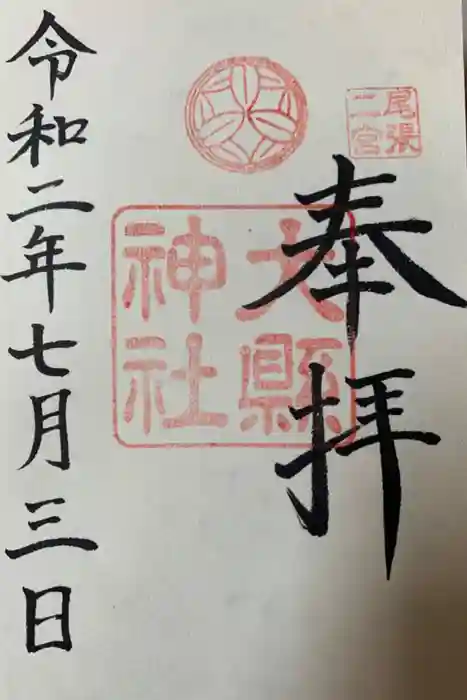 尾張
二宮
奉拝
大縣
神社
令和二年七月三日